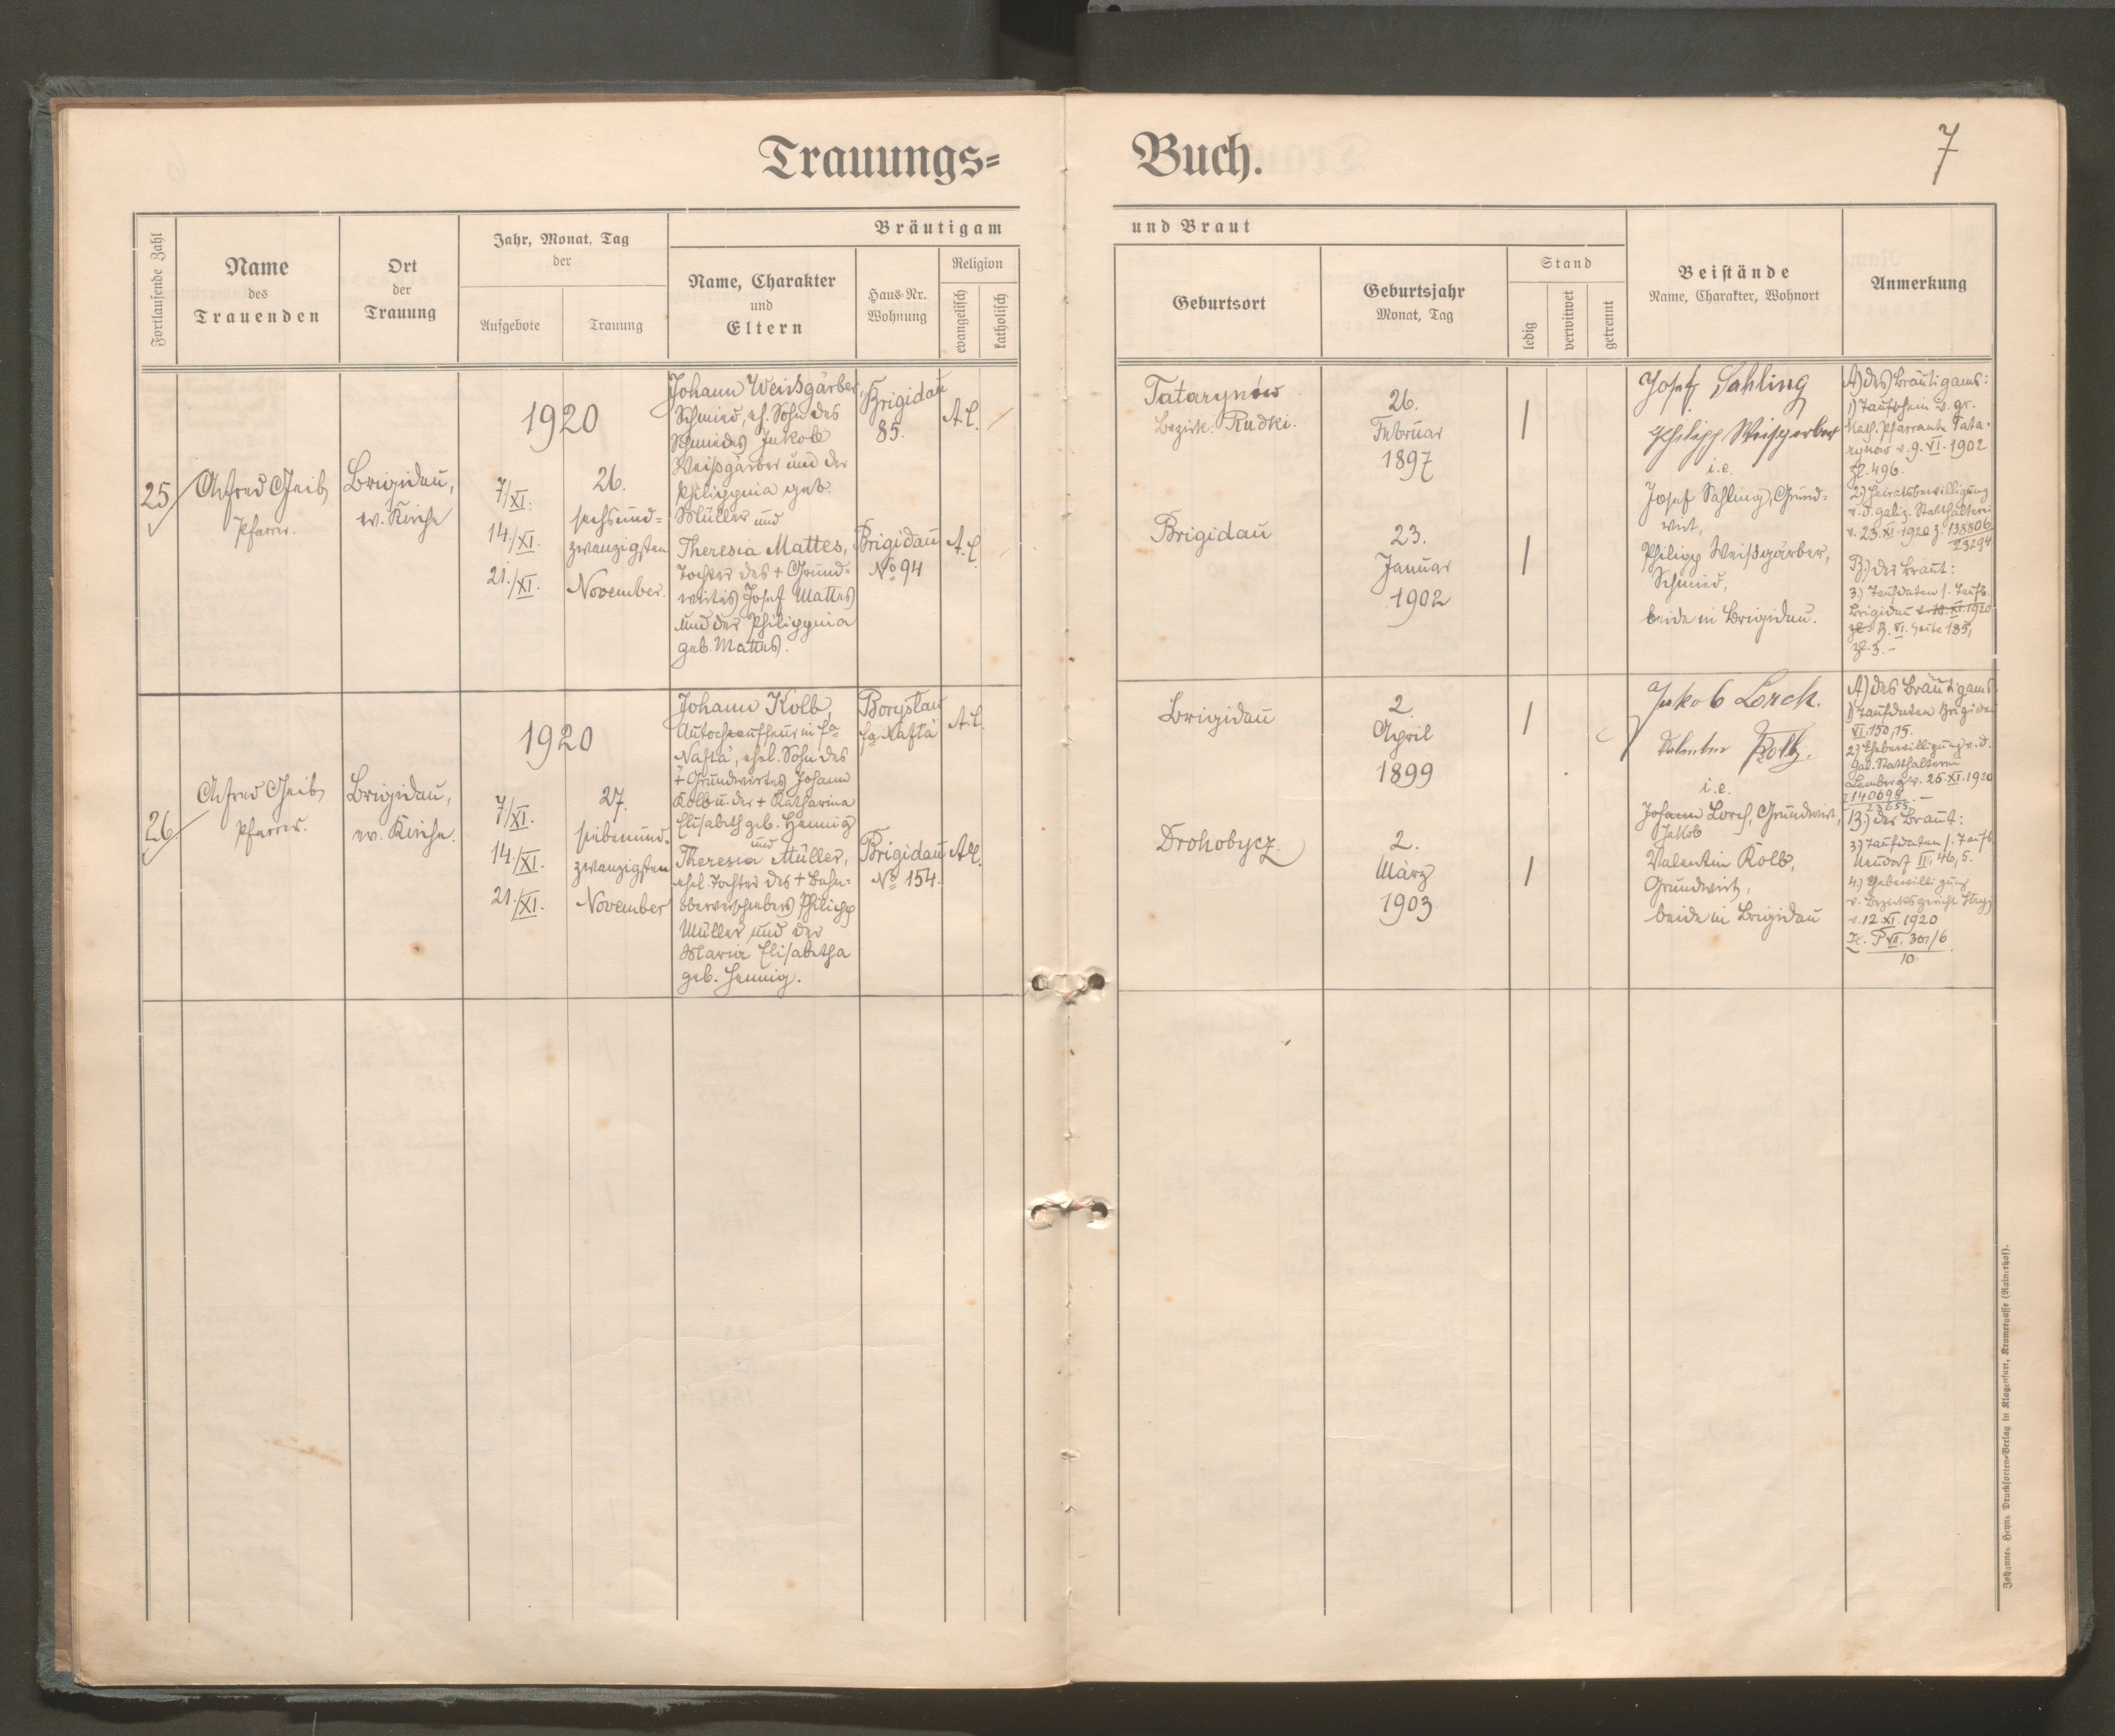 Trauungs=
Buch.
7
Fortlaufende Zahl
Name
des
Trauenden
Ort
der
Trauung
Jahr, Monat, Tag
der
Aufgebote
Trauung
Bräutigam
Name, Charakter
und
Eltern
Haus-Nr.
Wohnung
Religion
evangelisch
katholisch
und Braut
Geburtsort
Geburtsjahr
Monat, Tag
Stand
ledig
verwitwet
getrennt
Beistände
Name, Charakter, Wohnort
Anmerkung
25
Alfred Geib
Pfarrer.
Brigidau,
ev. Kirche
1920
7/XI.
14./XI.
21./XI.
26.
sechsund=
zwanzigsten
November.
Johann Weissgärber,
Schmied, eh. Sohn des
Schmiedes Jakob
Weißgärber und der
Philippina geb.
Müller und
Theresia Mattes,
Tochter des + Grund-
wirtes Josef Mattes
und der Philippina
geb. Mattes.
Brigidau
85.
Brigidau
No 94
A.C.
A.C.
Tatarynów
Bezirk: Rudki.
Brigidau
26.
Februar
1897
23.
Januar
1902
Josef Sahling
Philipp Weisgerber
i.e.
Josef Sahling, Grund=
wirt,
Philipp Weißgärber,
Schmied,
beide in Brigidau.
A) des Bräutigams:
1) Taufschein d. gr.
kath. Pfarramte Tata-
rynow v. 9. VI. 1902
Zl. 496.
2.) Heiratsbewilligung
v. d. galiz. Statthalterei
v. 23. XI. 1920 Z. 138806
23294
B.) der Braut:
3.) Taufdaten s. Taufb.
Brigidau v. 10. XI. 1920
Zl. B. VI. Seite 185,
Zl. 3.-
26
Alfred Geib
Pfarrer.
Brigidau,
ev. Kirche.
1920
7/XI.
14./XI.
21./XI.
27.
siebenund-
zwanzigsten
November
Johann Kolb,
Autochauffeur in fa
Nafta, ehel. Sohn des
+ Grundwirtes Johann
Kolb u. der + Katharina
Elisabeth geb. Hennig
und
Theresia Müller,
ehel. Tochter des + Bahn=
oberverschiebers Philipp
Müller und der
Maria Elisabetha
geb. Hennig.
Boryslau
fa Nafta
Brigidau
No 154.
A.C.
A.C.
Brigidau
Drohobycz.
2.
April
1899
2.
März
1903
Jakob Lorch.
Kolb.
i.e.
Johann Lorch, Grundwirt,
Jakob
Valentin Kolb,
Grundwirt,
beide in Brigidau
A) des Bräutigams
1) Taufdaten Brigidau
VI. 150, 15.
2) Ehebewilligung v. d.
gal. Statthalterei
Lemberg v. 26. XI. 1920
Z 140698
23655.-
B.) der Braut:
3) Taufdaten s. Taufb.
Neudorf II, 46, 5.
4.) Ehebewilligung
v. Bezirksgericht Stryj
v. 12. XI. 1920
Z. P VII. 301/6
10
Johannes Heyns Drucksorten-Verlag in Klagenfurt, Kramergasse (Rainerhof).